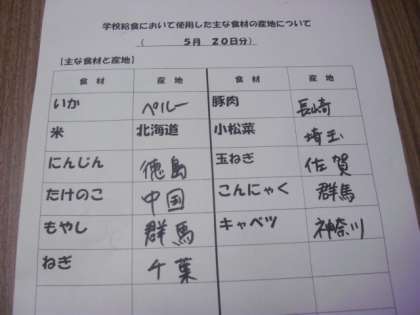 学校給食において使用した主な食材の産地について
(　　５月　２０日分)
【主な食材と産地】
食材　産地　食材　産地
いか　ペルー　豚肉　長崎
米　北海道　小松菜　埼玉
にんじん　徳島　玉ねぎ　佐賀
たけのこ　中国　こんにゃく　群馬
もやし　群馬　キャベツ　神奈川
ねぎ　千葉